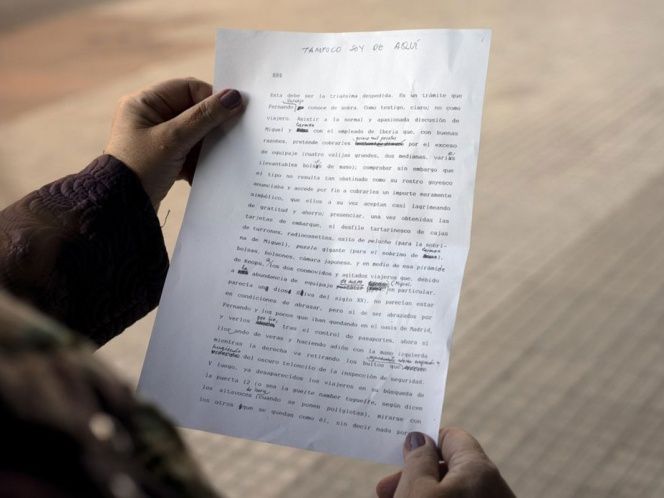 TAMPOCO SOY DE AQUÍ
Esta debe ser la triaésima despedida. Es un trámite que
Vallejo
Fernando conoce de sobra. Como testigo, claro; no como
viajero. Asistir a la normal y apasionada discusión de
Carmela
Miguel y con el empleado de Iberia que, con buenas
razones, pretende cobrarles por el exceso
de equipaje (cuatro valijas grandes, dos medianas, varias
llevantables bolsos de mano); comprobar sin embargo que
el tipo no resulta tan obstinado como su rostro goyesco
anunciaba y accede por fin a cobrarles un importe meramente
simbólico, que ellos a su vez aceptan casi lagrimeando
de gratitud y ahorro; presenciar, una vez obtenidas las
tarjetas de embarque, el desfile tartarinesco de cajas
de turrones, radiocasettes, osito de peluche (para la sobri-
na de Miguel), puzzle gigante (para el sobrino de
bolsas, bolsones, cámara japonesa, y en medio de esa pirámide
de Keops, a los dos conmovidos y agitados viajeros que, debido
a la abundancia de equipaje (Miguel
parecía una diosa del siglo XX), no parecían estar
en condiciones de abrazar, pero sí de ser abrazados por
Fernando y los pocos que iban quedando en el oasis de Madrid,
y verlos tras el control de pasaportes, ahora sí
llorando de veras y haciendo adiós con la mano izquierda
mientras la derecha va retirando los bultos que
del oscuro teloncito de la inspección de seguridad.
Y luego, ya desaparecidos los viajeros en su búsqueda de
la puerta 12 (o sea la gueite namber tuguelfe, según dicen
los altavoces cuando se ponen políglotas), mirarse con
los otros que se quedan como él, sin decir nada por